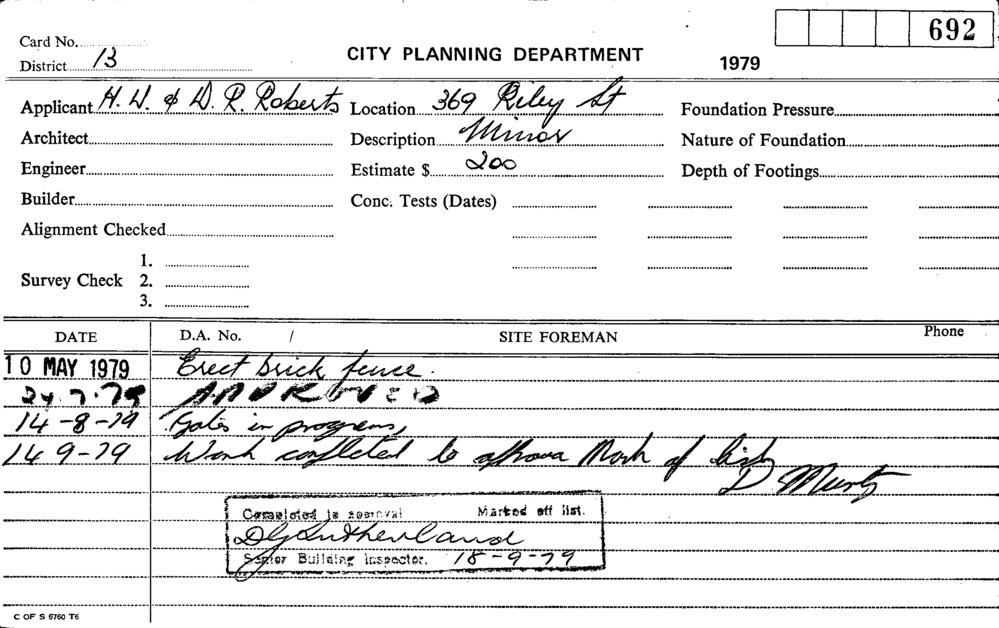 692
Card No.
District 13 CITY PLANNING DEPARTMENT 1979
Applicant H. W. & D. R. Roberts Location 369 Riley St Foundation Pressure
Architect Description Minor Nature of Foundation
Engineer Estimate $ 200 Depth of Footings
Builder Conc. Tests (Dates)
Alignment Checked
1.
Survey Check 2.
3.
DATE D.A. No. / SITE FOREMAN Phone
10 MAY 1979 Erect brick fence.
24.7.79 APPROVED
14-8-79 in progress,
14 9-79 Work completed to Mark of list
D
Completed to approval Marked off list.
D G Sutherland
Senior Building Inspector. 18-9-79
C OF S 6760 T6